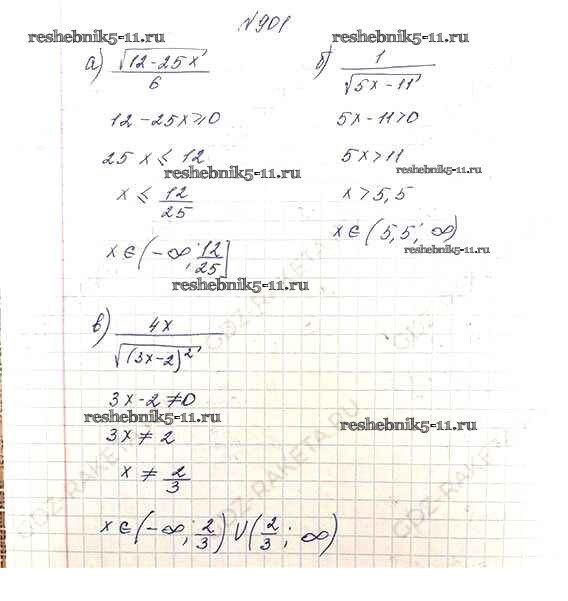 №901
reshebnik5-11.ru reshebnik5-11.ru
а) √(12-25x) / 6
б) 1 / √(5x-11)
12-25x⩾0
5x-11>0
25x ⩽ 12
5x>11
reshebnik5-11.ru reshebnik5-11.ru
x ⩽ 12/25
x>5,5
x∈(-∞; 12/25]
x∈(5,5; ∞)
reshebnik5-11.ru
reshebnik5-11.ru
в) 4x / √((3x-2)²)
3x-2≠0
reshebnik5-11.ru reshebnik5-11.ru
3x ≠ 2
x ≠ 2/3
x∈(-∞; 2/3) U (2/3; ∞)
GDZ-RAKETA.RU
GDZ-RAKETA.RU
GDZ-RAKETA.RU